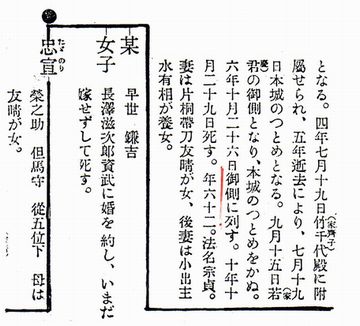 となる。四年七月十九日竹千代殿に附
(家齊子)
屬せられ、五年逝去により、七月十九
日本城のつとめとなる。九月十五日若
(家
君の御側となり、本城のつとめをかぬ。
慶)
六年十月二十六日御側に列す。十年十
月二十九日死す。年六十二。法名宗貞。
妻は片桐帶刀友晴が女、後妻は小出主
水有相が養女。
某
早世 鎌吉
女子
長澤滋次郎資武に婚を約し、いまだ
嫁せずして死す。
忠宣
たゞのり
榮之助 但馬守 從五位下 母は
友晴が女。